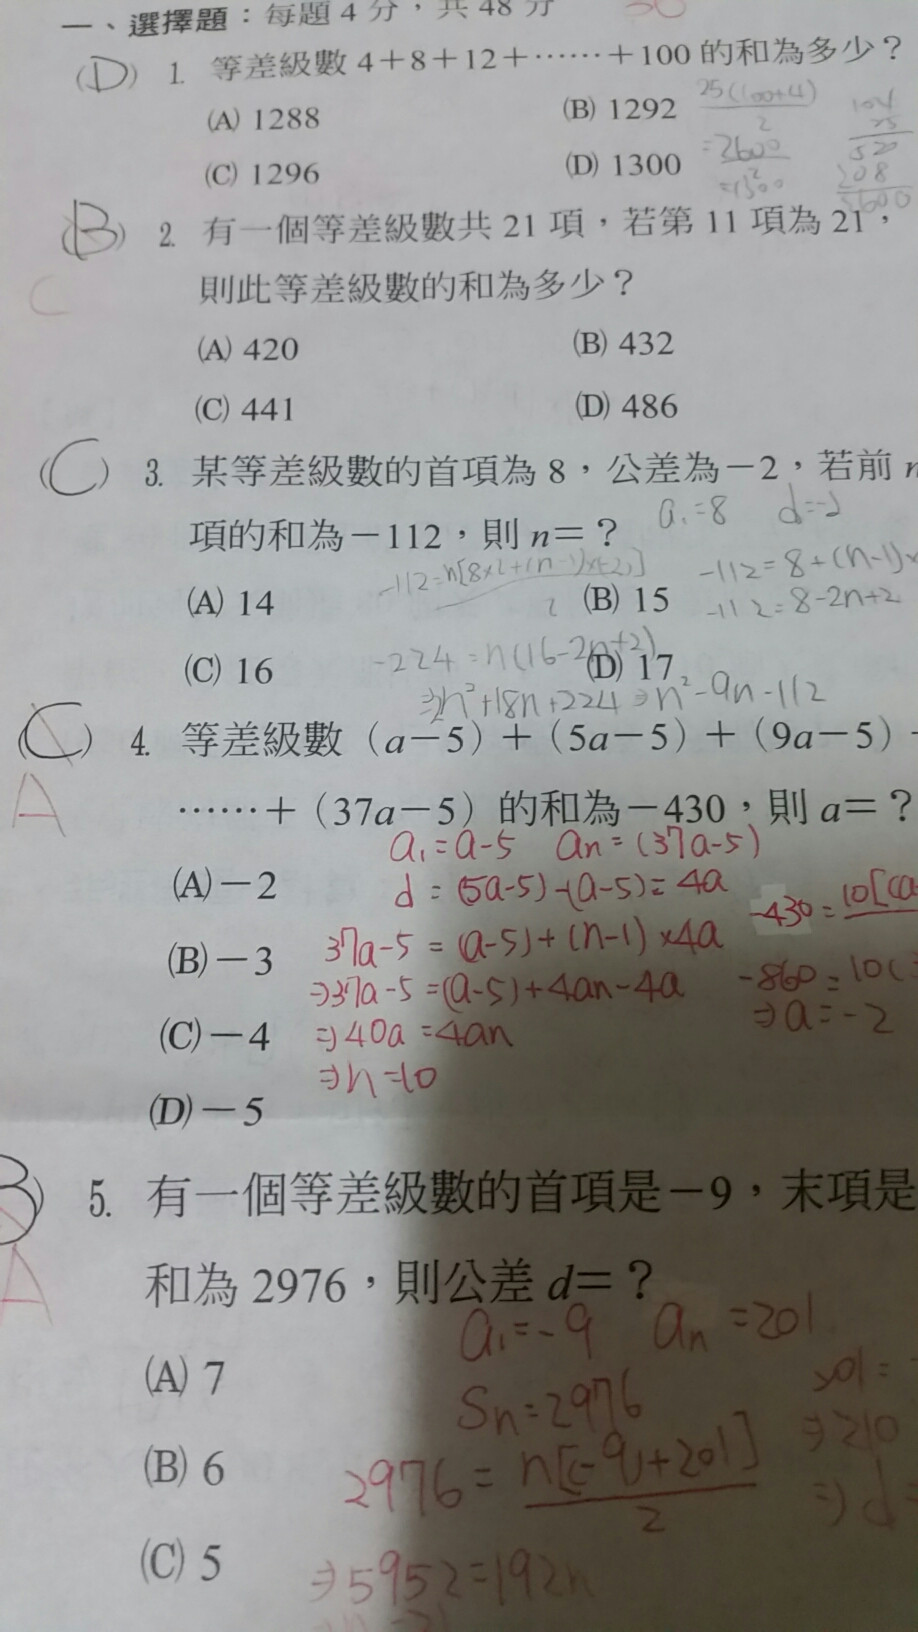 一、選擇題：每題4分，共48分
(D) 1. 等差級數 4＋8＋12＋……＋100 的和為多少？
(A) 1288 (B) 1292
(C) 1296 (D) 1300
25(100+4)
2
=2600
2
=1300
104
25
520
208
2600
(B) 2. 有一個等差級數共 21 項，若第 11 項為 21，
C
則此等差級數的和為多少？
(A) 420 (B) 432
(C) 441 (D) 486
(C) 3. 某等差級數的首項為 8，公差為－2，若前 n
項的和為－112，則 n＝？
a₁=8 d=-2
(A) 14 (B) 15
-112=8+(n-1)×
-112=8-2n+2
(C) 16 (D) 17
-224=n(16-2n+2)
n²-9n-112
(C) 4. 等差級數（a－5）＋（5a－5）＋（9a－5）＋
A
……＋（37a－5）的和為－430，則 a＝？
a₁=a-5 an=(37a-5)
(A)－2
d=(5a-5)-(a-5)=4a
-430=10[(a-
(B)－3
37a-5=(a-5)+(n-1)×4a
⇒37a-5=(a-5)+4an-4a
-860=10(
⇒a=-2
(C)－4
⇒40a=4an
⇒n=10
(D)－5
B) 5. 有一個等差級數的首項是－9，末項是
A
和為 2976，則公差 d＝？
a₁=-9 an=201
(A) 7
Sn=2976
201=
⇒210
(B) 6
2976=n[(-9)+201]
2
⇒d=
(C) 5
⇒5952=192n